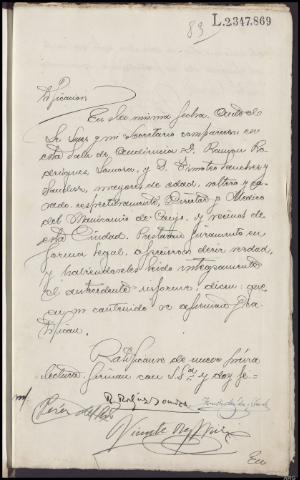 83 L.2347.869
Ratificacion
En la misma fecha. Ante el
Sr. Juez y mi Secretario comparecen en
esta Sala de Audiencia D. Ramon Ro
driguez Somoza, y D. Timoteo Sanchez y
Sanchez, mayores de edad, soltero y ca
sado respetivamente, Director y Medico
del Manicomio de Conjo, y vecinos de
esta Ciudad. Prestaron juramento en
forma legal, ofrecieron decir verdad,
y habiendoles leido integramente
el antecedente informe, dicen: que
en su contenido se afirman y ra
tifican.
Ratificanse de nuevo previa
lectura firman con S.Sª y doy fe-